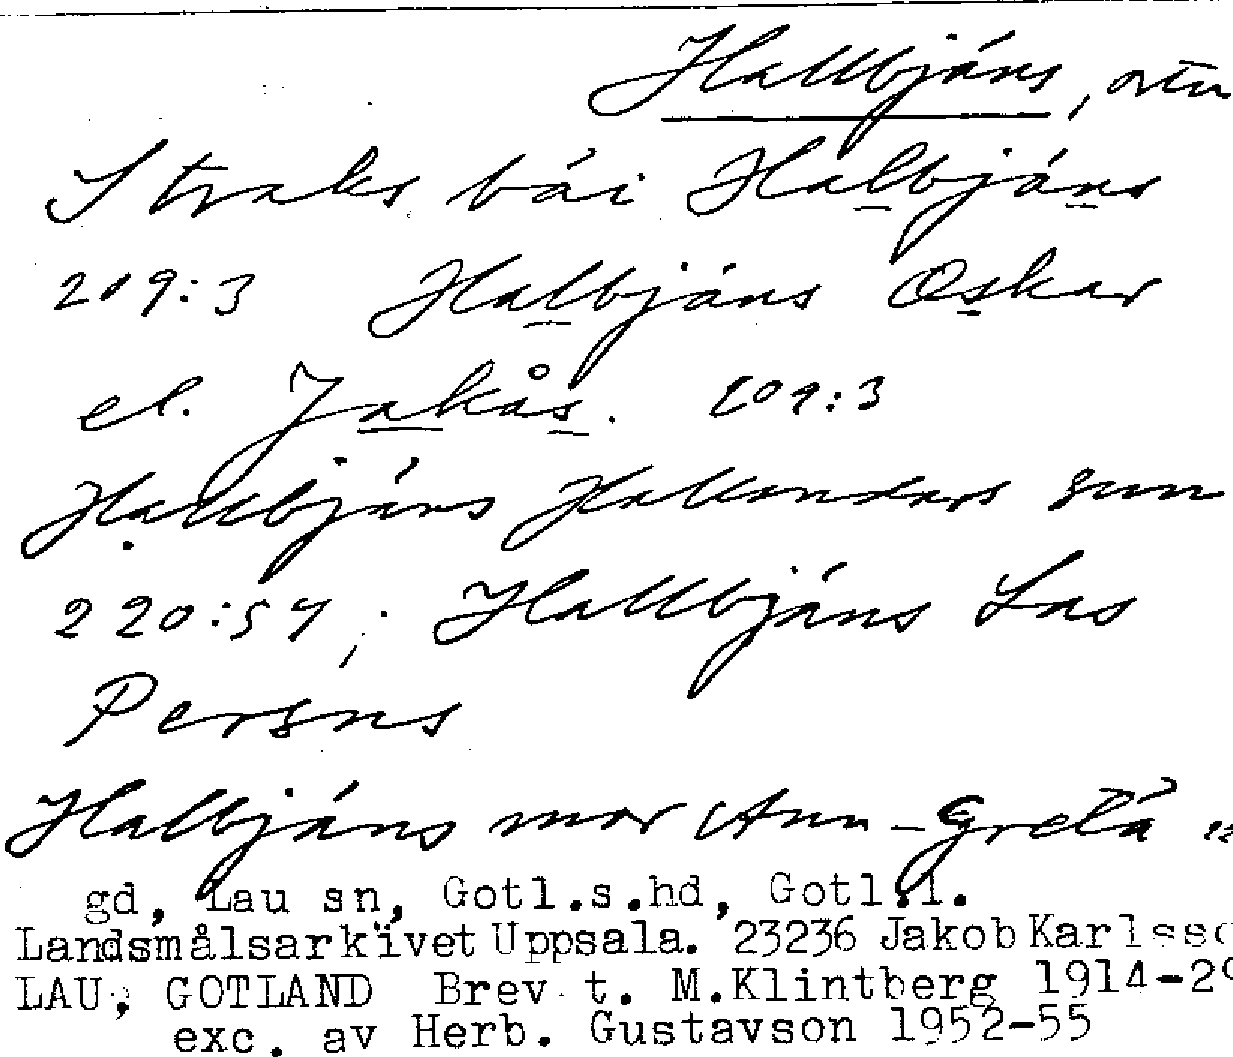 Hallbjáns, otn
Straks bái Halbjáns
209:3 Halbjáns Oskar
el. Jakås. 209:3
Hallbjáns Hallvndars sun
220:54; Hallbjáns Las
Persns
Halbjáns mor Ann-Gretá
gd, Lau sn, Gotl.s.hd, Gotl.l.
Landsmålsarkivet Uppsala. 23236 Jakob Karlsso
LAU, GOTLAND Brev t. M.Klintberg 1914-29
exc. av Herb. Gustavson 1952-55